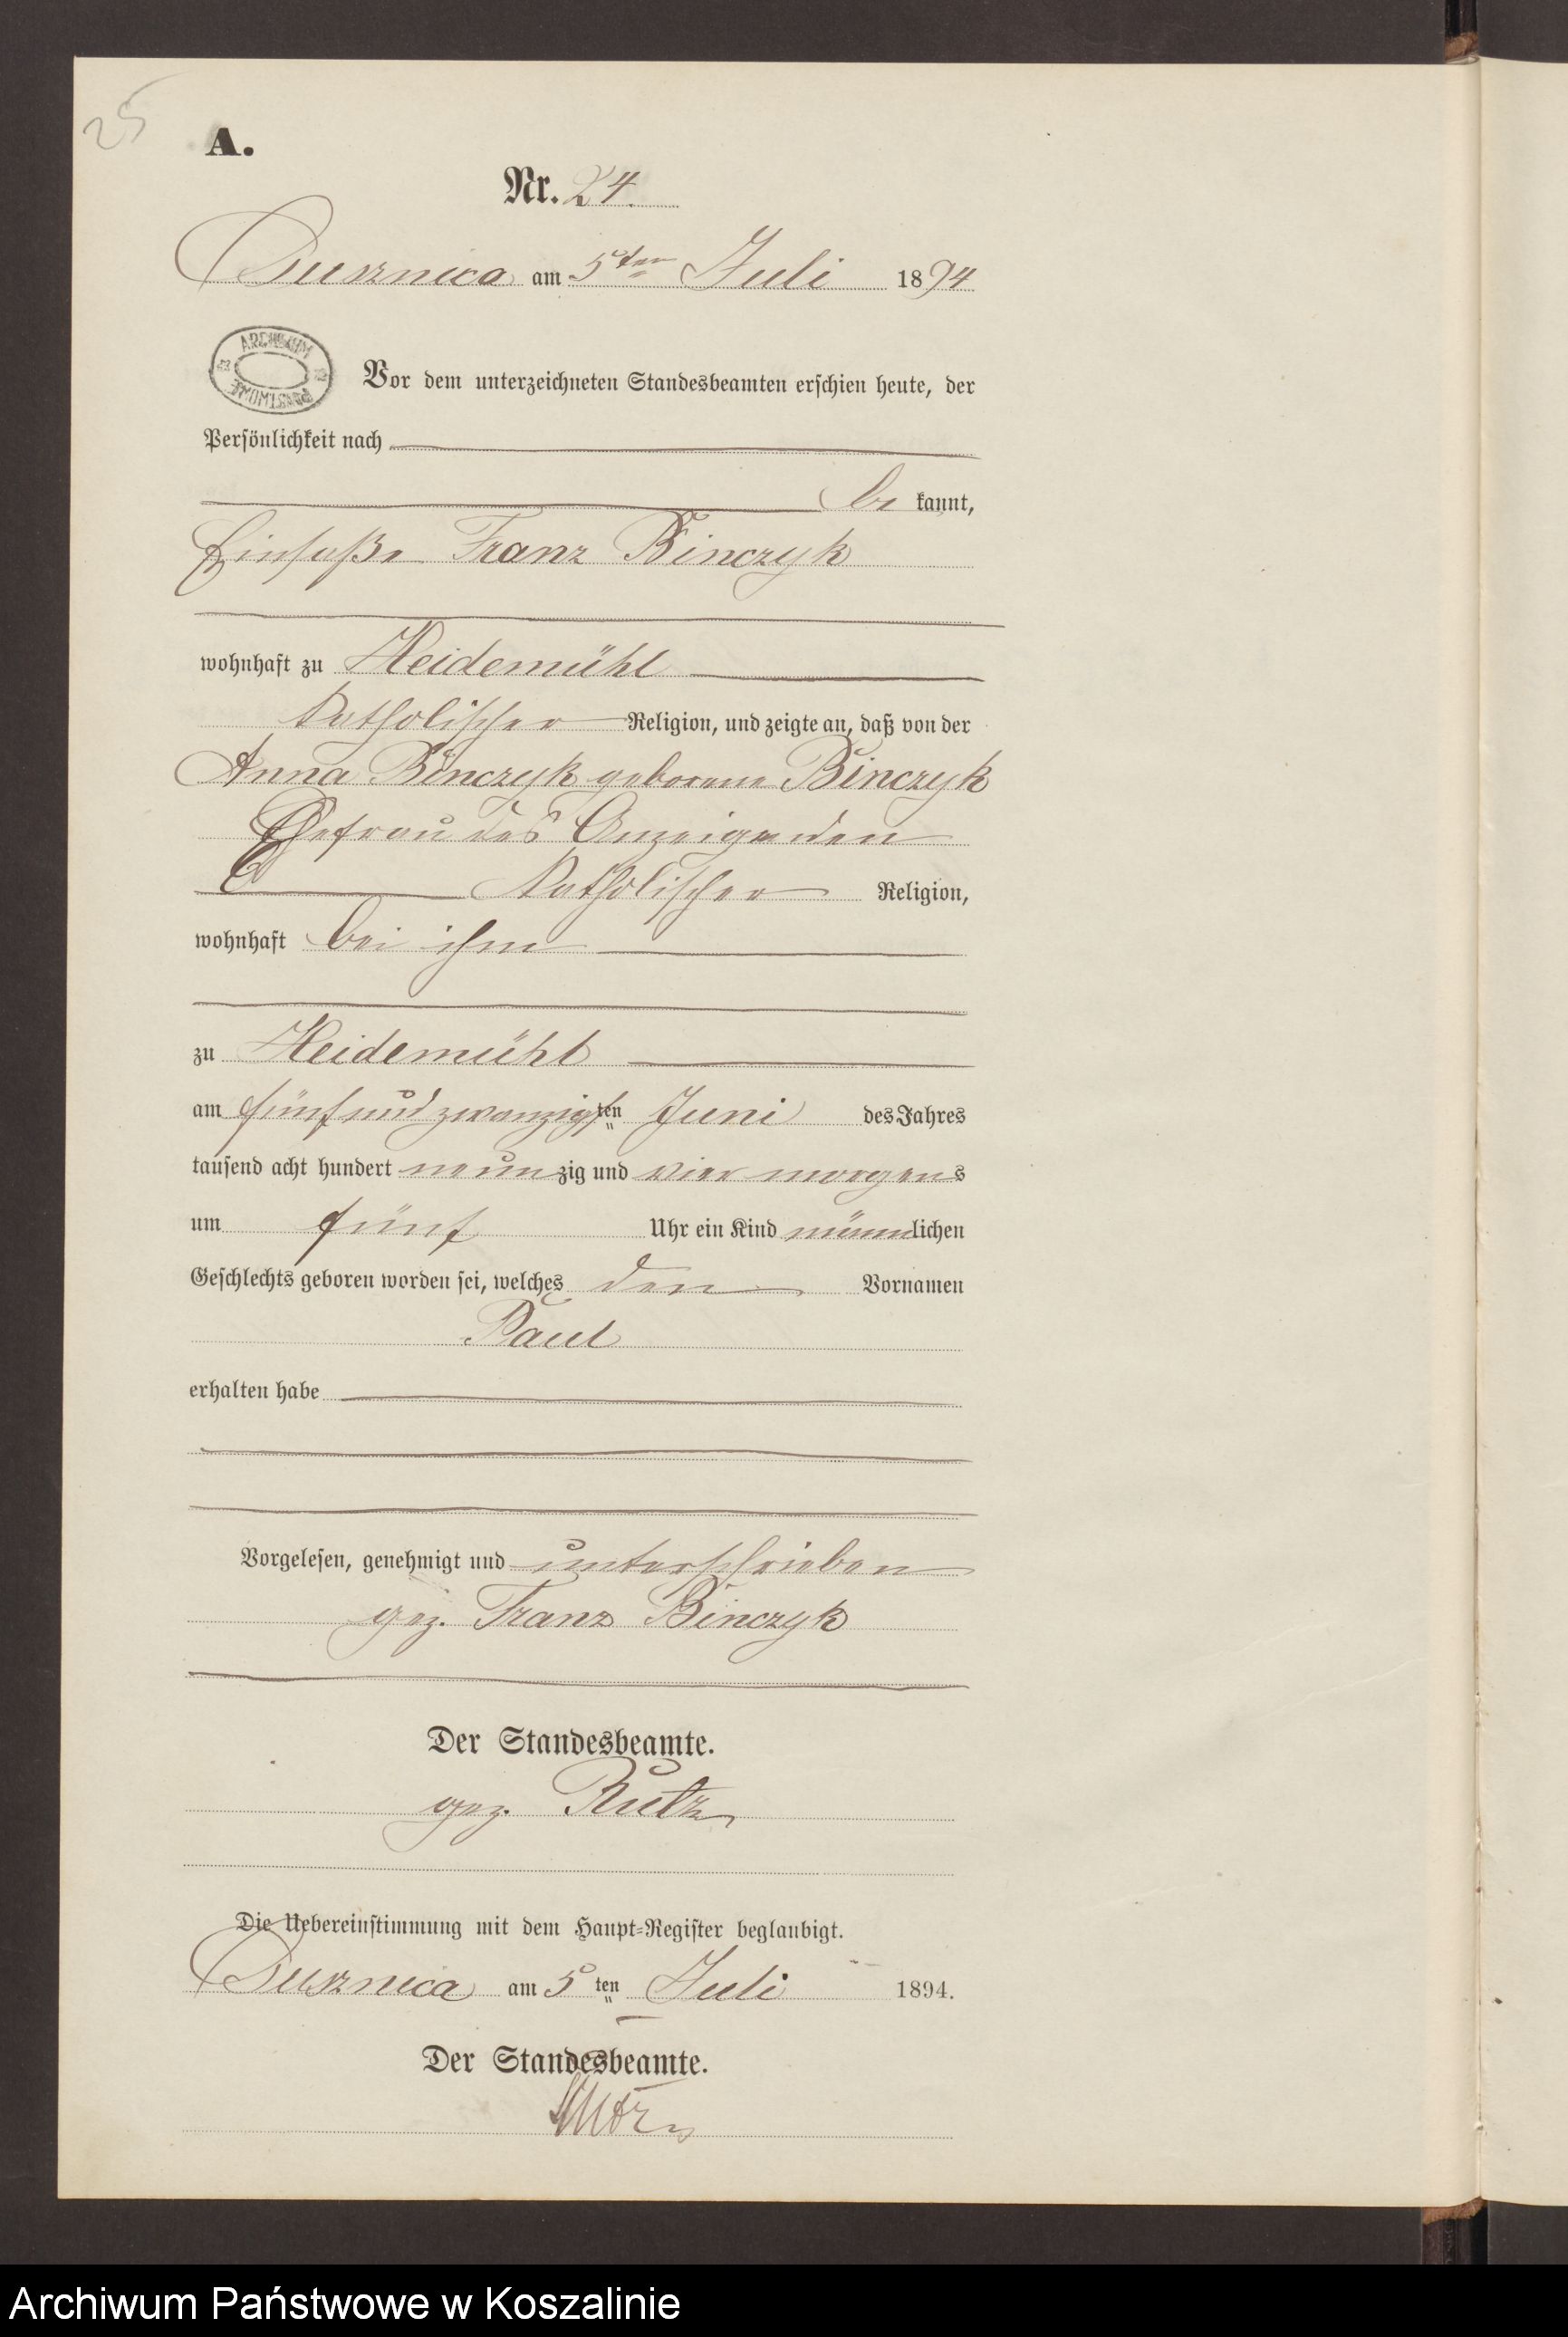 25
A.
Nr. 24.
am 5ten Juli 1894
ARCHIWUM PAŃSTWOWE
Vor dem unterzeichneten Standesbeamten erschien heute, der
Persönlichkeit nach
be kannt,
Einsaße Franz Binczyk
wohnhaft zu Heidemühl
katholischer Religion, und zeigte an, daß von der
Anna Binczyk geborene Binczyk
Ehefrau des Anzeigenden
katholischer Religion,
wohnhaft bei ihm
zu Heidemühl
am fünfundzwanzigsten Juni des Jahres
tausend acht hundert neunzig und vier morgens
um fünf Uhr ein Kind männlichen
Geschlechts geboren worden sei, welches den Vornamen
Paul
erhalten habe
Vorgelesen, genehmigt und unterschrieben
gez. Franz Binczyk
Der Standesbeamte.
gez. Rutz
Die Uebereinstimmung mit dem Haupt-Register beglaubigt.
am 5 ten Juli 1894.
Der Standesbeamte.
Rutz
Archiwum Państwowe w Koszalinie